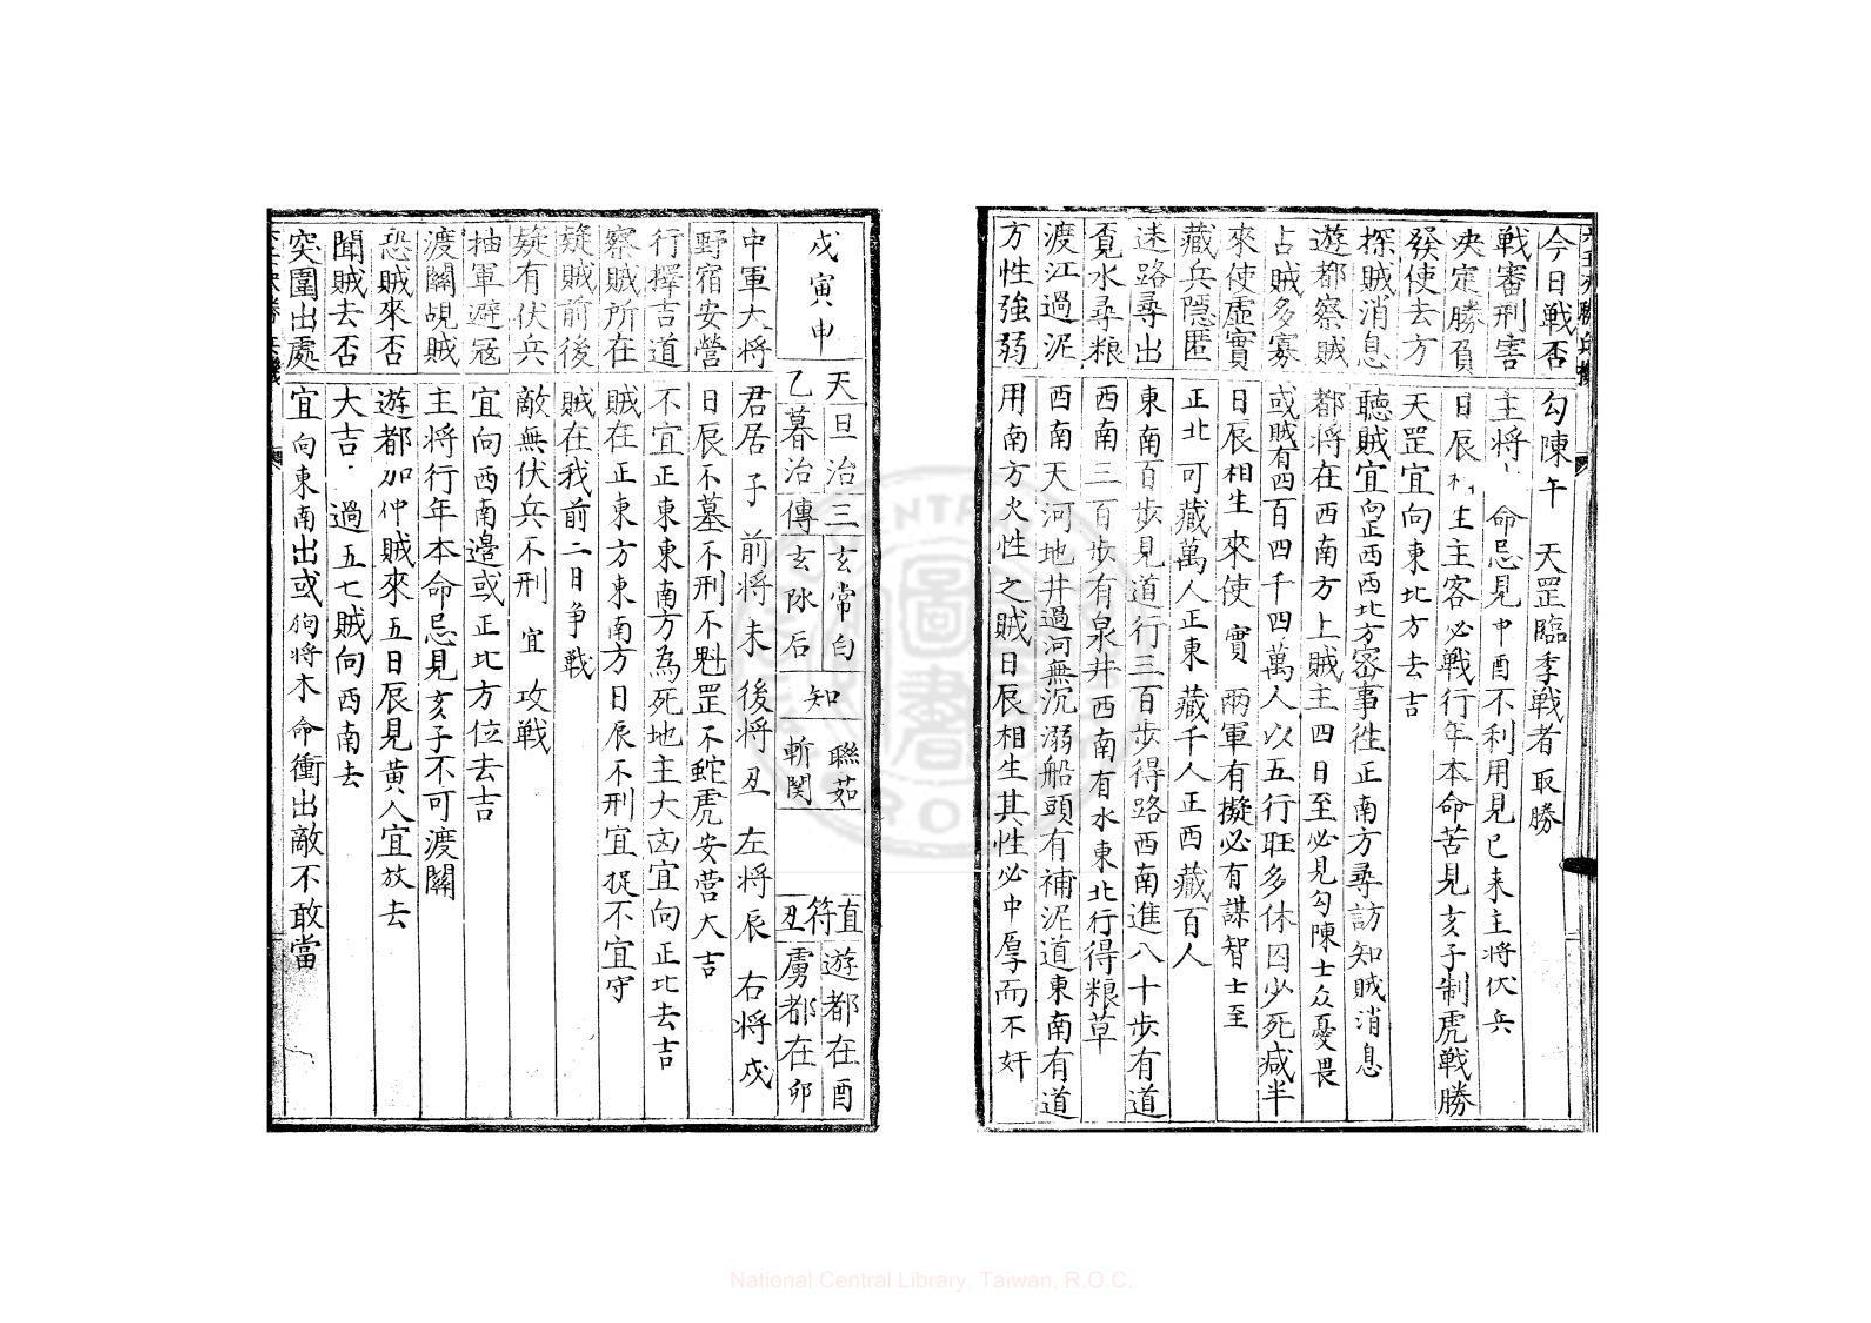 今日戰否 勾陳午 天罡臨季戰者取勝
戰審刑害 主將 命忌見申酉不利用見巳未主將伏兵
決定勝負 日辰 生主客必戰行年本命苦見亥子制虎戰勝
發使去方 天罡宜向東北方去吉
探賊消息 聽賊宜向正西西北方審事徃正南方尋訪知賊消息
遊都察賊 都將在西南方上賊主四日至必見勾陳士众憂畏
占賊多寡 或賊有四百四千四萬人以五行旺多休囚少死減半
來使虛實 日辰相生來使實 兩軍有擬必有謀智士至
藏兵隱匿 正北可藏萬人正東藏千人正西藏百人
迷路尋出 東南百步見道行三百步得路西南進八十步有道
覔水尋粮 西南三百步有泉井西南有水東北行得粮草
渡江過泥 西南天河地井過河無沉溺船頭有補泥道東南有道
方性強弱 用南方火性之賊日辰相生其性必中厚而不奸
戊寅申
天旦治三玄常白
乙暮治傳玄𱀀后
知
聯茹
斬関
直符丑
遊都在酉
虜都在卯
中軍大將 君居子 前將未 後將丑 左將辰 右將戍
野宿安營 日辰不墓不刑不魁罡不蛇虎安營大吉
行擇吉道 不宜正東東南方為死地主大凶宜向正北去吉
察賊所在 賊在正東方東南方日辰不刑宜捉不宜守
疑賊前後 賊在我前二日争戰
疑有伏兵 敵無伏兵不刑 宜 攻戰
抽軍避冦 宜向西南邊或正北方位去吉
渡關覘賊 主將行年本命忌見亥子不可渡關
恐賊來否 遊都加仲賊來五日辰見黄人宜放去
聞賊去否 大吉 過五七賊向西南去
突圍出處 宜向東南出或 將木命衝出敵不敢當
National Central Library, Taiwan, R.O.C.